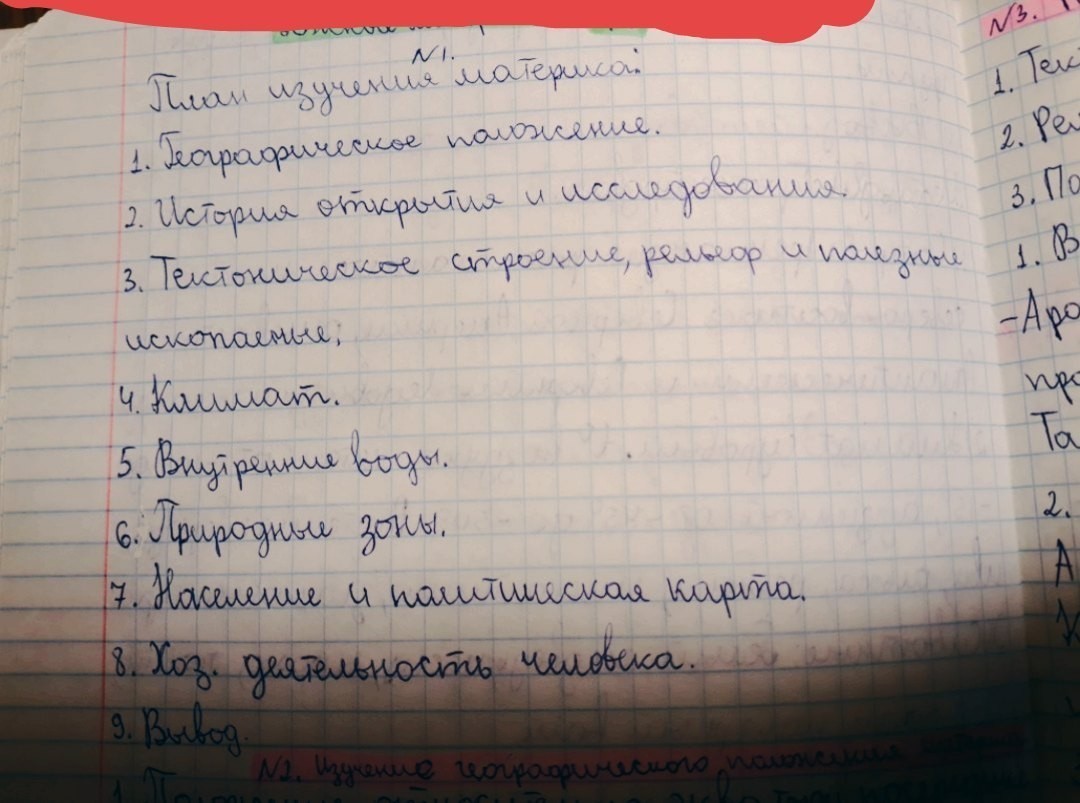 N1.
План изучения материка:
1. Географическое положение.
2. История открытия и исследования.
3. Тектоническое строение, рельеф и полезные
ископаемые.
4. Климат.
5. Внутренние воды.
6. Природные зоны.
7. Население и политическая карта.
8. Хоз. деятельность человека.
9. Вывод.
N2. Изучение географического положения
1. Положение относительно экватора
N3.
1. Тек
2. Рел
3. По
1. В
- Ара
про
Та
2.
А
К